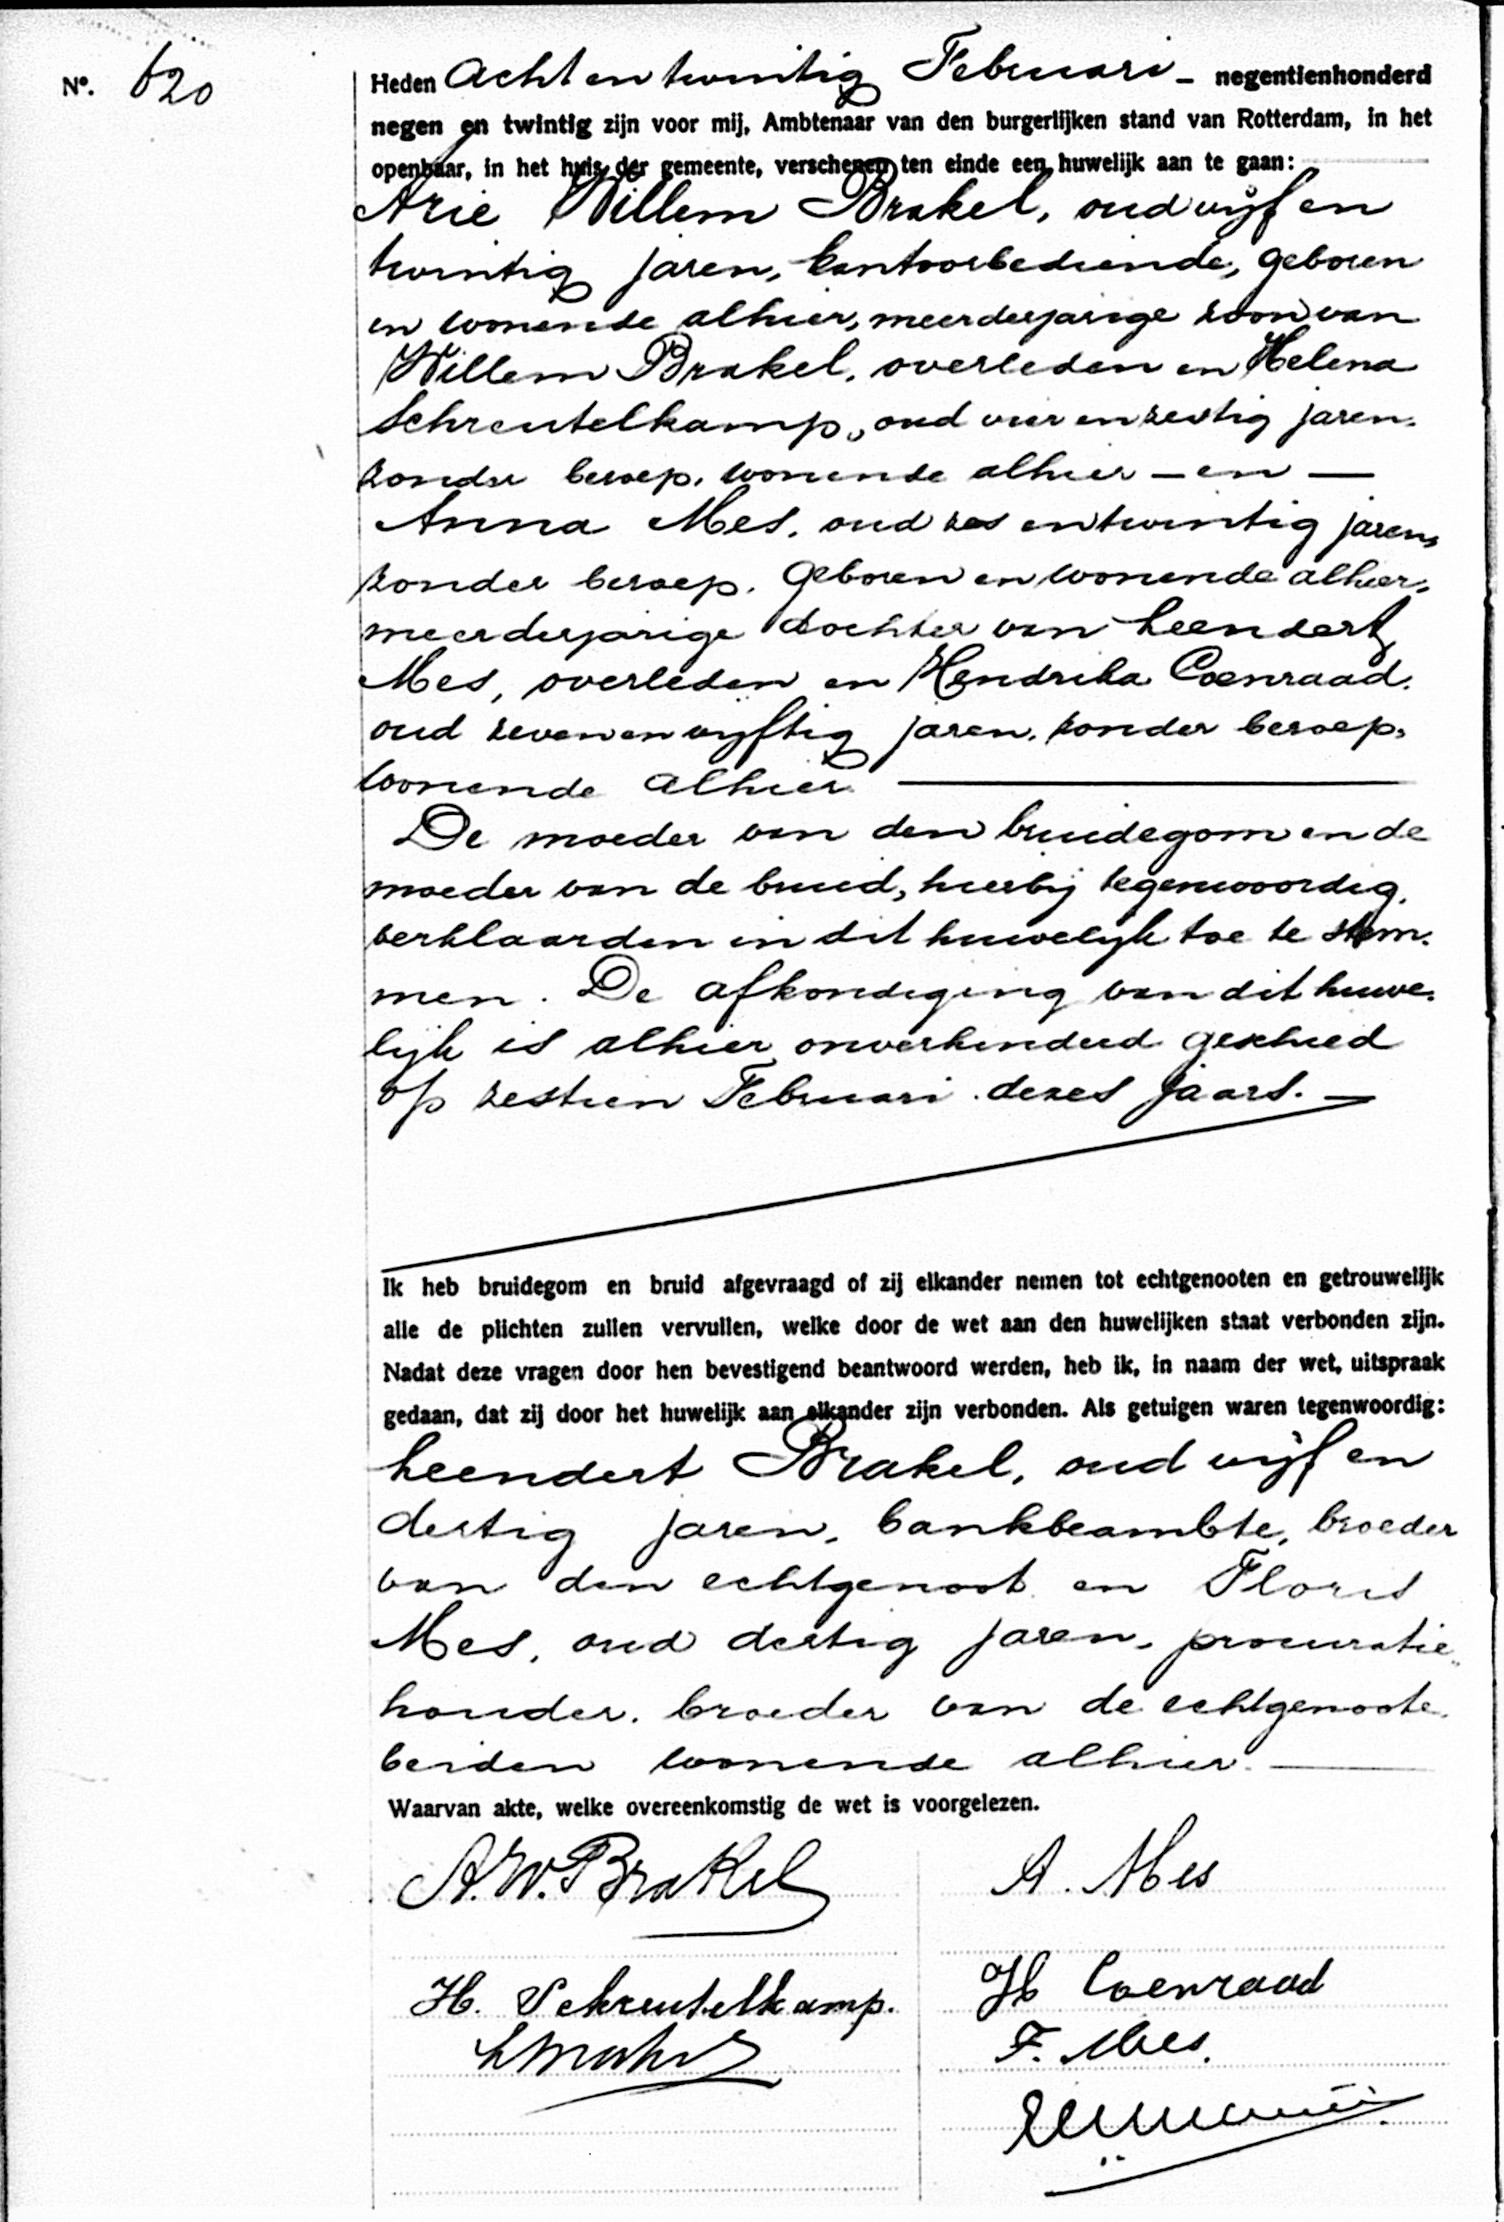 Nº. 620
Heden Acht en twintig Februari - negentienhonderd
negen en twintig zijn voor mij, Ambtenaar van den burgerlijken stand van Rotterdam, in het
openbaar, in het huis der gemeente, verschenen ten einde een huwelijk aan te gaan:
Arie Willem Brakel, oud vijf en
twintig jaren, kantoorbediende, geboren
en wonende alhier, meerderjarige zoon van
Willem Brakel, overleden en Helena
Schreutelkamp, oud vier en zestig jaren,
zonder beroep, wonende alhier - en -
Anna Mes, oud zes en twintig jaren,
zonder beroep, geboren en wonende alhier,
meerderjarige dochter van Leendert
Mes, overleden en Hendrika Coenraad,
oud zeven en vijftig jaren, zonder beroep,
wonende alhier.
De moeder van den bruidegom en de
moeder van de bruid, hierbij tegenwoordig,
verklaarden in dit huwelijk toe te stem-
men. De afkondiging van dit huwe-
lijk is alhier onverhinderd geschied
op zestien Februari dezes jaars.
Ik heb bruidegom en bruid afgevraagd of zij elkander nemen tot echtgenooten en getrouwelijk
alle de plichten zullen vervullen, welke door de wet aan den huwelijken staat verbonden zijn.
Nadat deze vragen door hen bevestigend beantwoord werden, heb ik, in naam der wet, uitspraak
gedaan, dat zij door het huwelijk aan elkander zijn verbonden. Als getuigen waren tegenwoordig:
Leendert Brakel, oud vijf en
dertig jaren, bankbeambte, broeder
van den echtgenoot en Floris
Mes, oud dertig jaren, procuratie-
houder, broeder van de echtgenoote,
beiden wonende alhier.
Waarvan akte, welke overeenkomstig de wet is voorgelezen.
A.W. Brakel
A. Mes
H. Schreutelkamp.
H Coenraad
F. Mes.